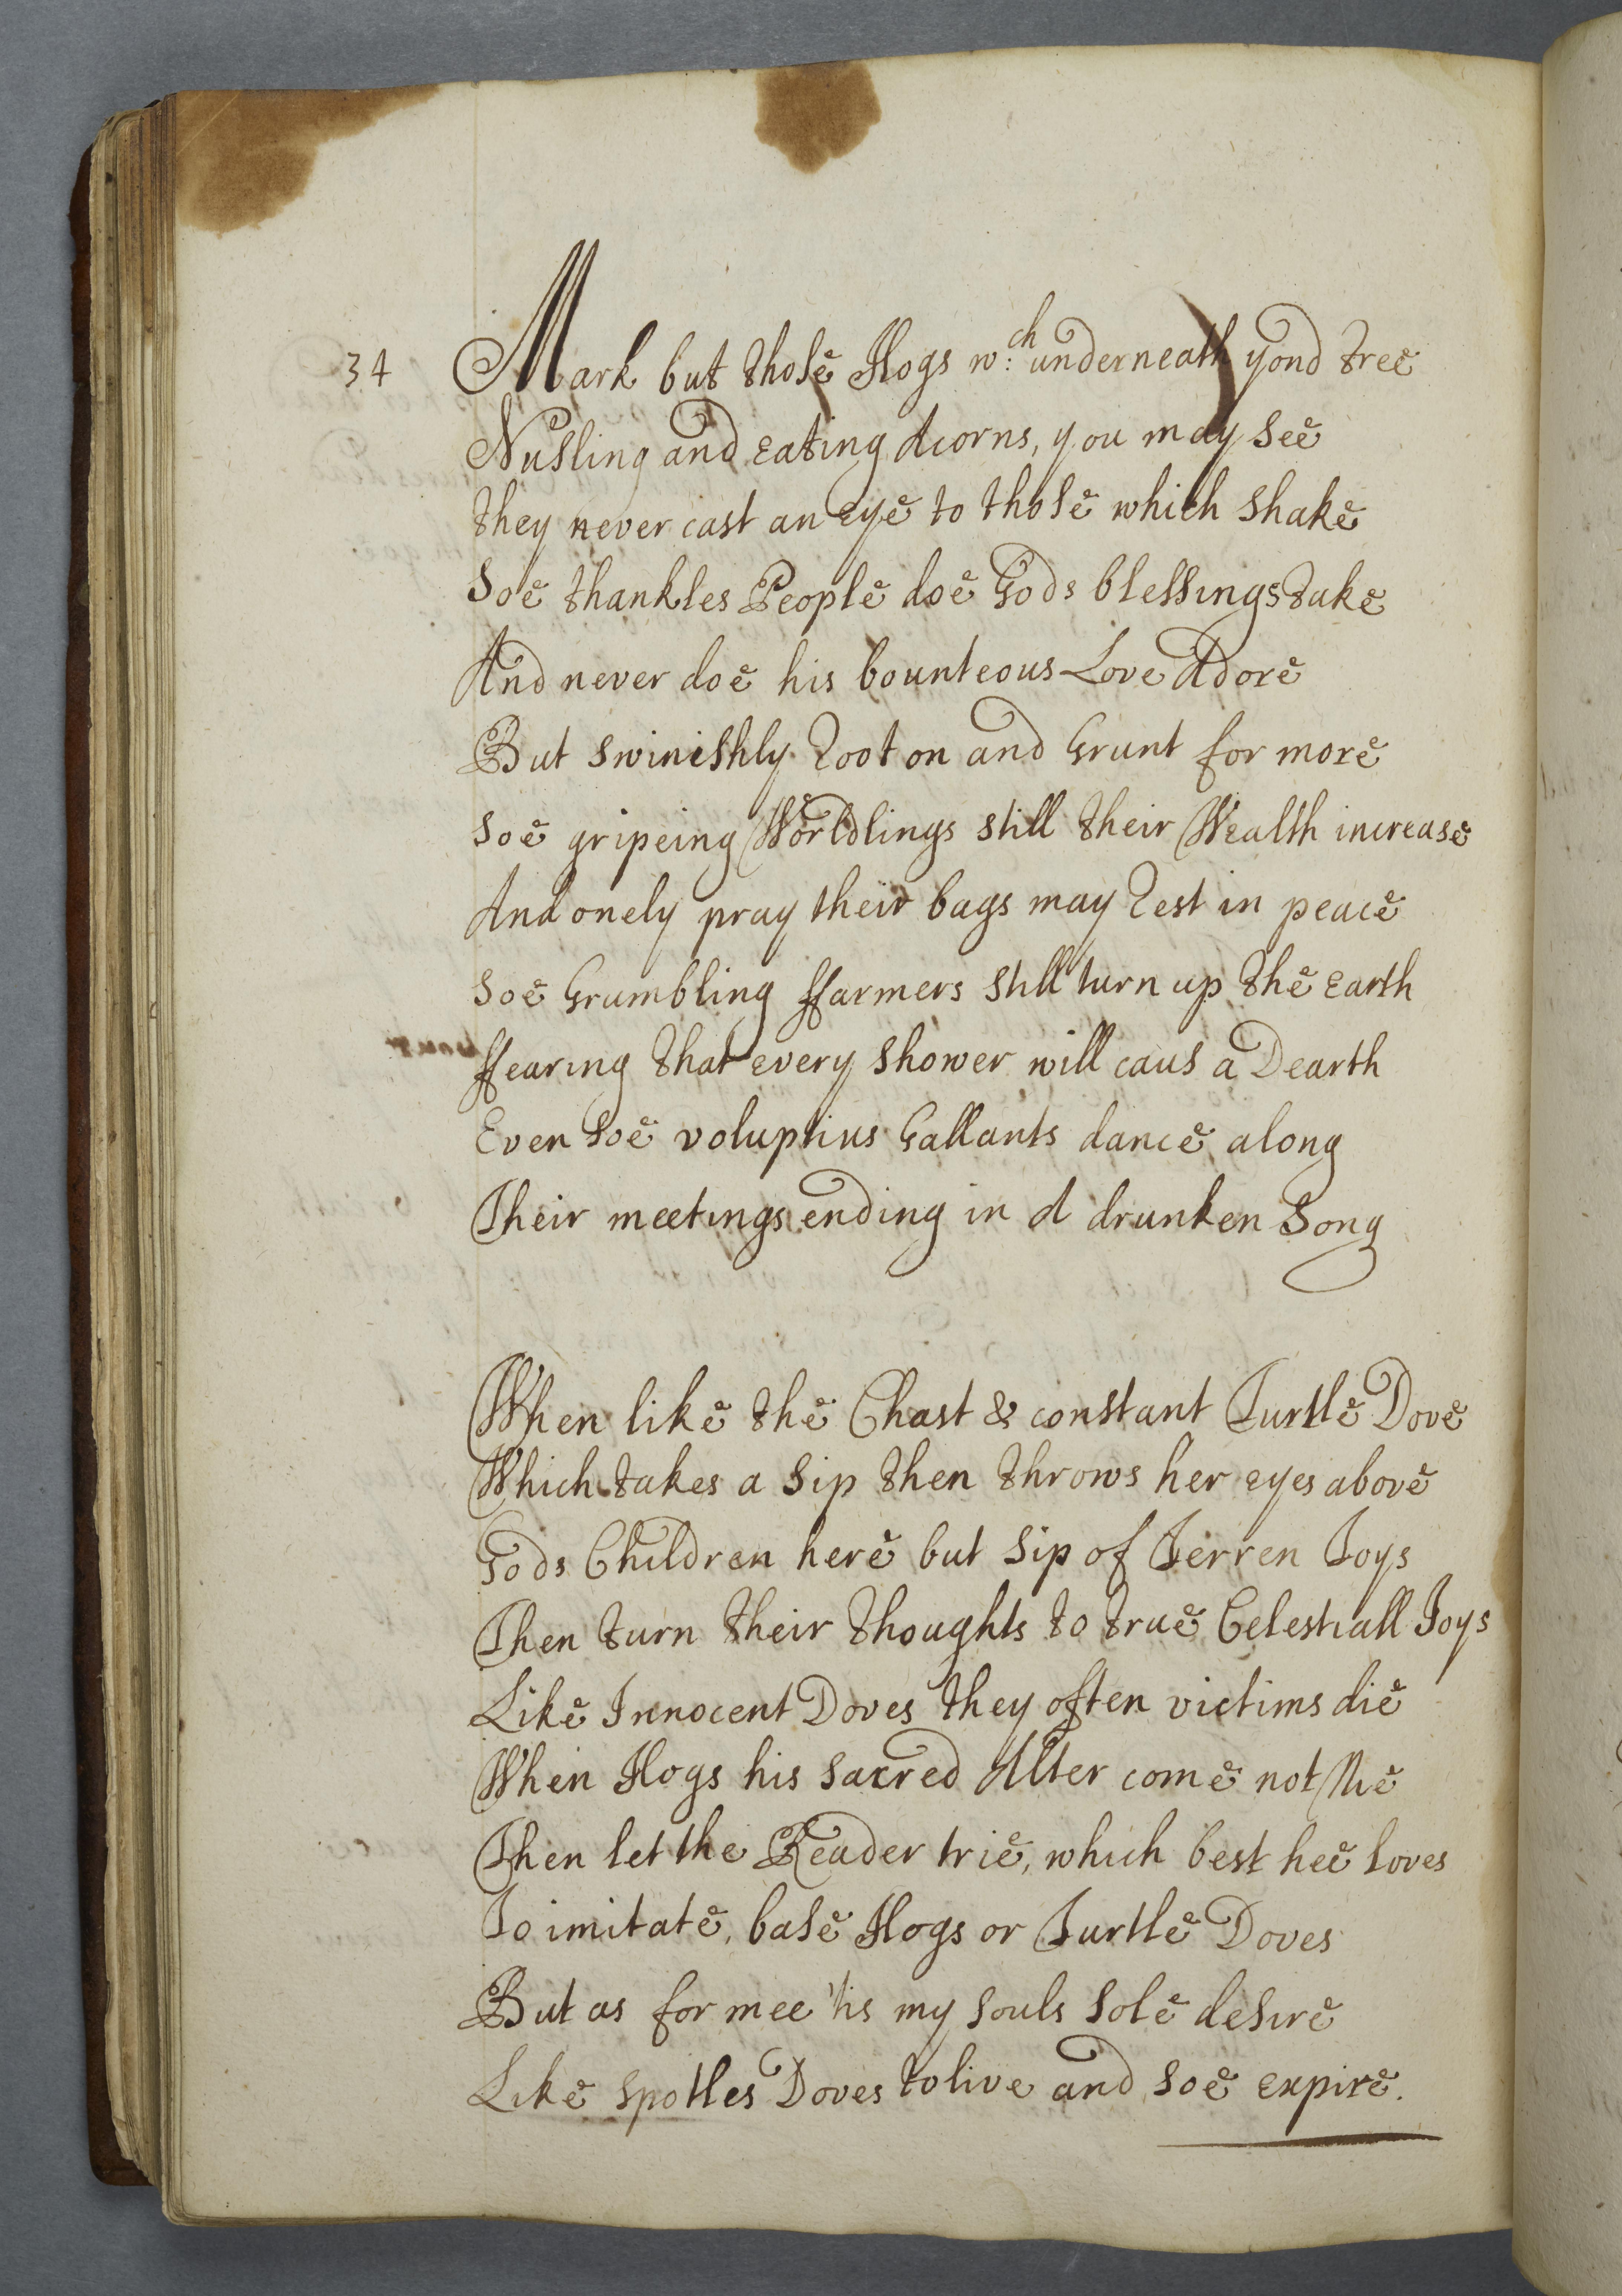 34 Mark but those Hogs w:ch underneath yond tree
Nusling and eating Acorns, you may see
they never cast an eye to those which shake
Soe thankles People doe Gods blessings take
And never doe his bounteous Love Adore
But swinishly Root on and Grunt for more
Soe gripeing Worldlings still their Wealth increase
And onely pray their bags may Rest in peace
Soe Grumbling ffarmers still turn up the earth
ffearing that every shower will caus a Dearth
Even soe voluptius Gallants dance along
Their meetings ending in A drunken Song
When like the Chast & constant Turtle Dove
Which takes a Sip then throws her eyes above
Gods Children here but Sip of Terren Toys
Then turn their thoughts to true Celestiall Joys
Like Innocent Doves they often victims die
When Hogs his sacred Alter come not Nie
Then let the Reader trie, which best hee loves
To imitate, base Hogs or Turtle Doves
But as for mee 'tis my Souls Sole desire
Like spotles Doves to live and soe expire.